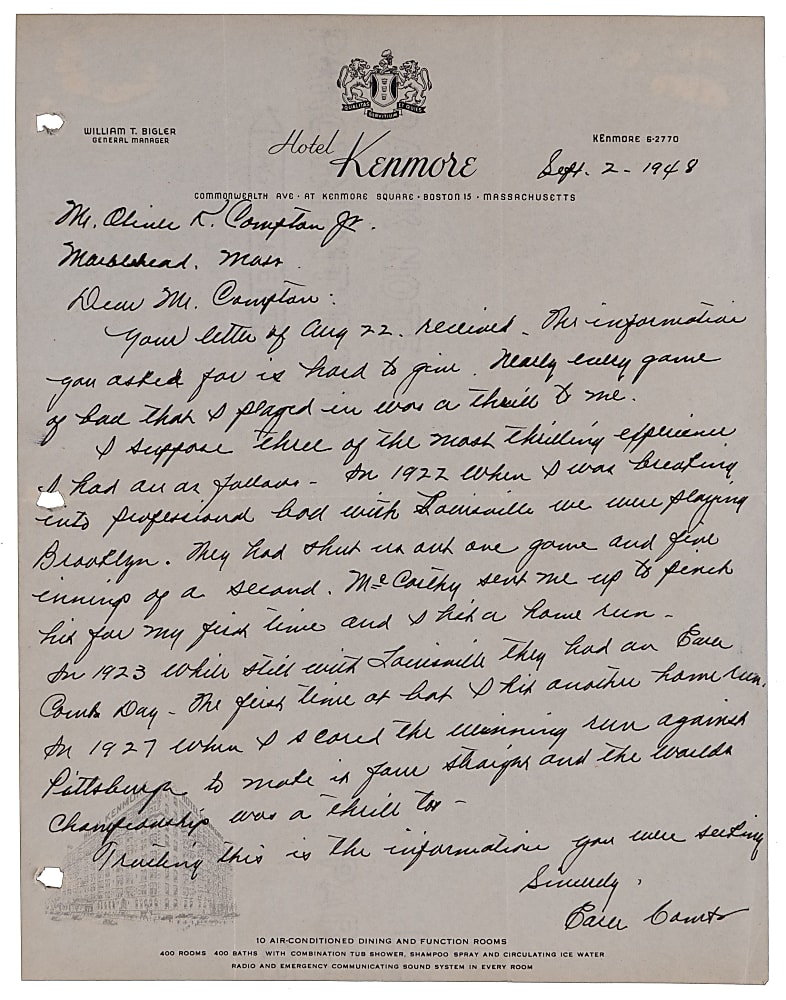 QUALITAS ET QUIES
SERVITIUM
WILLIAM T. BIGLER
GENERAL MANAGER
Hotel Kenmore
KENMORE 6-2770
Sept. 2 - 1948
COMMONWEALTH AVE · AT KENMORE SQUARE · BOSTON 15 · MASSACHUSETTS
Mr. Oliver K. Compton Jr.
Marblehead, Mass.
Dear Mr. Compton:
Your letter of Aug 22. received. The information
you asked for is hard to give. Nearly every game
of ball that I played in was a thrill to me.
I suppose three of the most thrilling experience
I had are as follows - In 1922 when I was breaking
into professional ball with Louisville we were playing
Brooklyn. They had shut us out one game and five
innings of a second. McCarthy sent me up to pinch
hit for my first time and I hit a home run -
In 1923 while still with Louisville they had an Earle
Combs Day - The first time at bat I hit another home run.
In 1927 when I scored the winning run against
Pittsburgh to make it four straight and the Worlds
Championship was a thrill too -
Trusting this is the information you were seeking
Sincerely,
Earle Combs
KENMORE
10 AIR-CONDITIONED DINING AND FUNCTION ROOMS
400 ROOMS 400 BATHS WITH COMBINATION TUB SHOWER, SHAMPOO SPRAY AND CIRCULATING ICE WATER
RADIO AND EMERGENCY COMMUNICATING SOUND SYSTEM IN EVERY ROOM